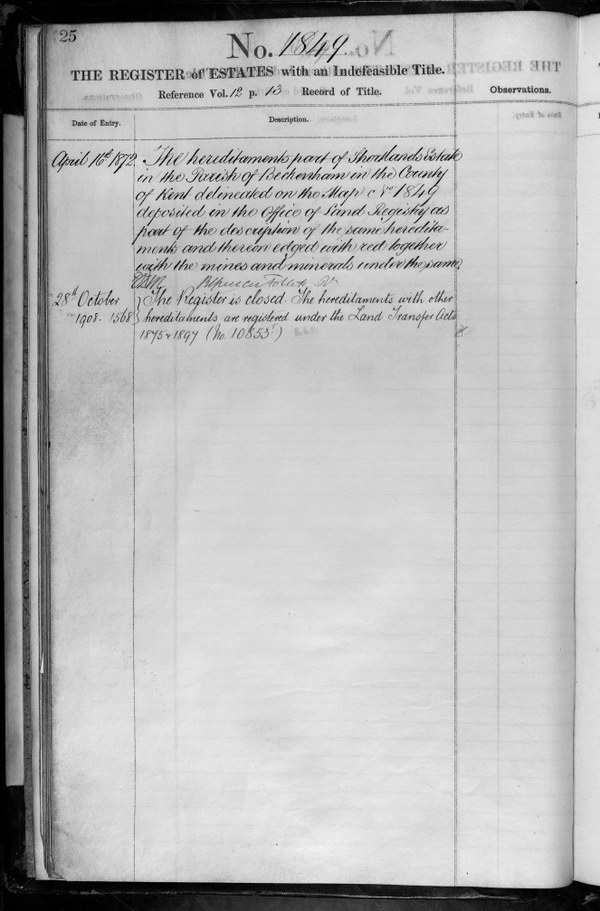 25
No. 1849.
THE REGISTER of ESTATES with an Indefeasible Title.
Reference Vol. 12 p. 13 Record of Title.
Observations.
Date of Entry.
Description.
April 16th 1872
The hereditaments part of Shortlands Estate
in the Parish of Beckenham in the County
of Kent delineated on the Map c No 1849
deposited in the Office of Land Registry as
part of the description of the same heredita-
ments and thereon edged with red together
with the mines and minerals under the same.
Follett
28th October
1908. 1568
The Register is closed. The hereditaments with other
hereditaments are registered under the Land Transfer Acts
1875 & 1897 (No. 10853)